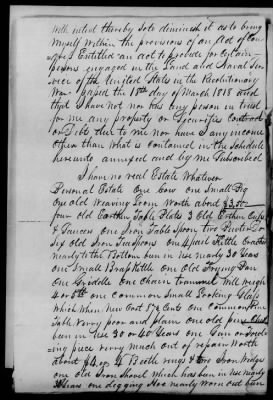 with intent thereby so to diminish it as to bring
myself within the provisions of an act of Con
gress Entitled an act to provide for Certain
persons engaged in the Land and Naval Ser
vice of the United States in the Revolutionary
War passed the 18th day of March 1818 and
that I have not nor has any person in trust
for me any property or Securities Contracts
or Debts due to me nor have I any income
other than what is contained in the schedule
hereunto annexed and by me Subscribed
I have no real Estate Whatever
Personal Estate One Cow one Small Pig
One old Weaving Loom Worth about $3.50
four old Earthen Table Plates 3 Old Earthen Cups
& Saucers one Iron Table Spoon two Pewter Do
Six old Iron Teaspoons One 4 pail Kettle Cracked
nearly to the Bottom bun in use nearly 30 Years
one Small Brass Kettle One Old Frying Pan
One Griddle one Chain trammel Will weigh
4 or 5 lb one Common Small Looking Glass
which When New Cost 87½ Cents One Common Pine
Table Verry poor and plain One old pine
bun in use 30 or 40 Years one
ing piece verry much out of repair Worth
about $4 2 Beetle rings & two Iron Wedges
one old Iron Shovel Which has bun in use nearly
Years one digging Hoe nearly Worn out bun